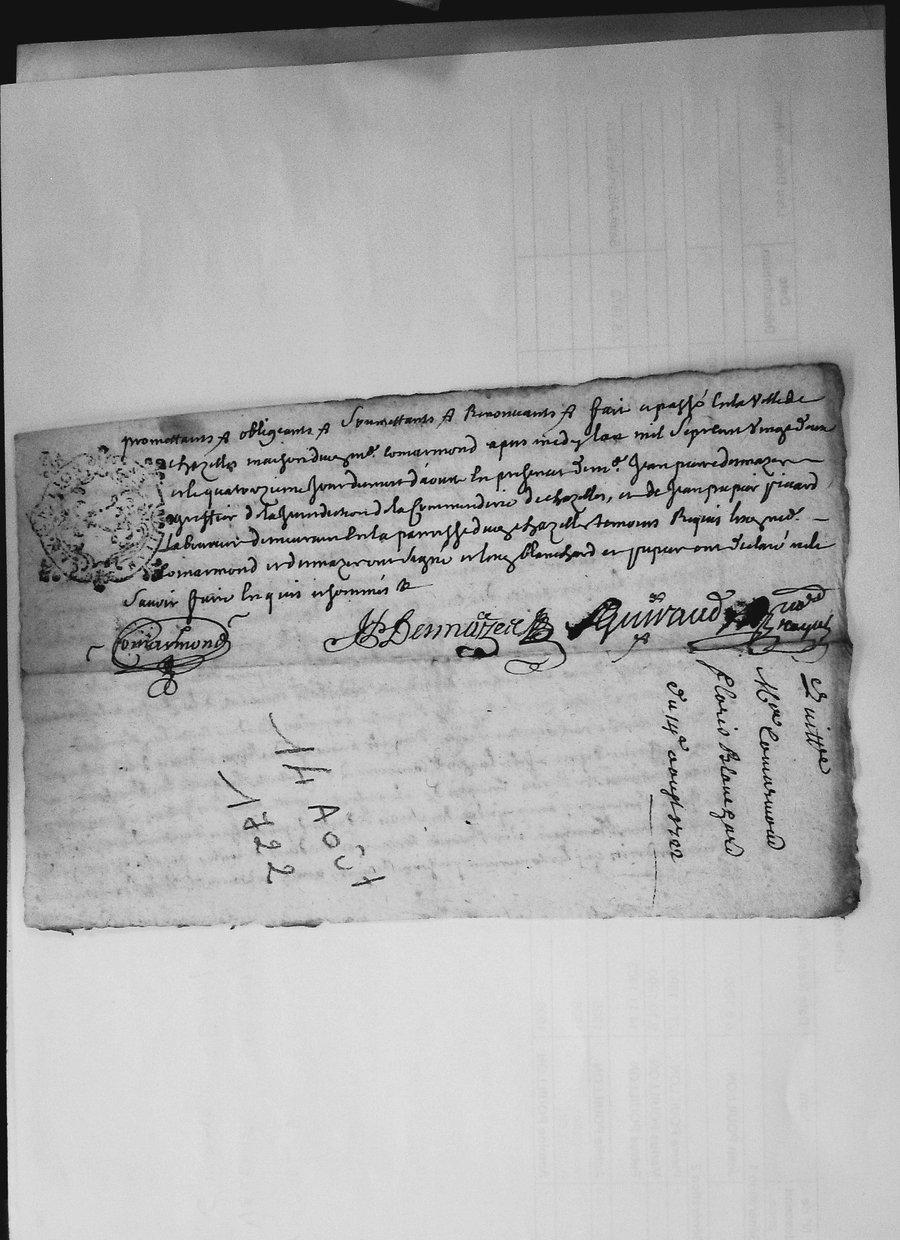 promettants & obligeants & Soumettants & Renonceants & fait et passé En la Ville de
chazelles maison dud sr Comarmond apres midy lan mil Sept cent Vingt deux
et le quatorzieme Jour du mois d'aoust En presence de me Jean pierre demazer
greffier de la Jurisdiction de la Commanderie de chazelles, et de Jean
laboureur demeurant En la parroisse dud chazelles temoins Requis lesquels
Comarmond et demazer ont signé et led blanchard et ont declaré ne le
Savoir faire Enquis et sommés &
Comarmond
Demazer
Guiraud
Nore Royal
Quittce
Mr Comarmond
floris Blanchard
du 14e aoust 1722
14 Août
1722